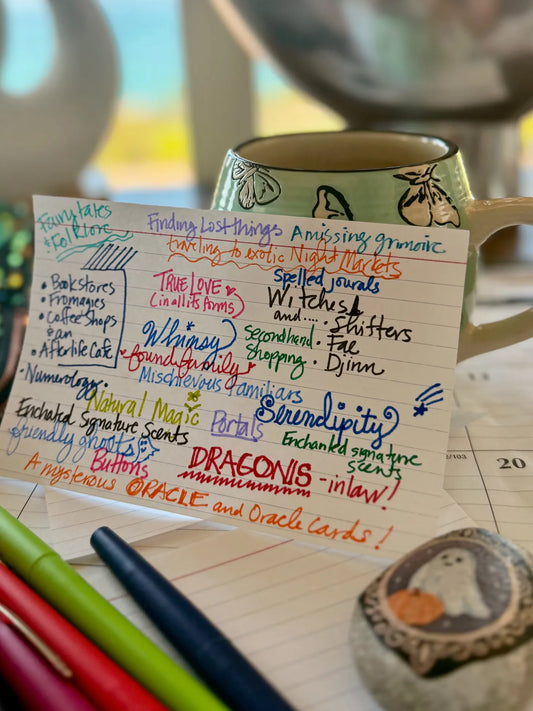 Fairytales
& Folklore
Finding Lost things
A missing grimoire
traveling to exotic Night Markets
• Bookstores
• Fromagies
• Coffee Shops
• Afterlife Cafe
TRUE LOVE
(in all its forms)
Spelled jourals
Witches
and....
• Shifters
• Fae
• Djinn
Whimsy
Secondhand
Shopping
• found family •
Mischievous Familiars
• Numerology •
Natural Magic
Portals
Serendipity
Enchated Signature Scents
Enchanted signature
scents
friendly ghosts
Buttons
DRAGONIS -inlaw!
A mysterious ORACLE and Oracle Cards!
2/103
20